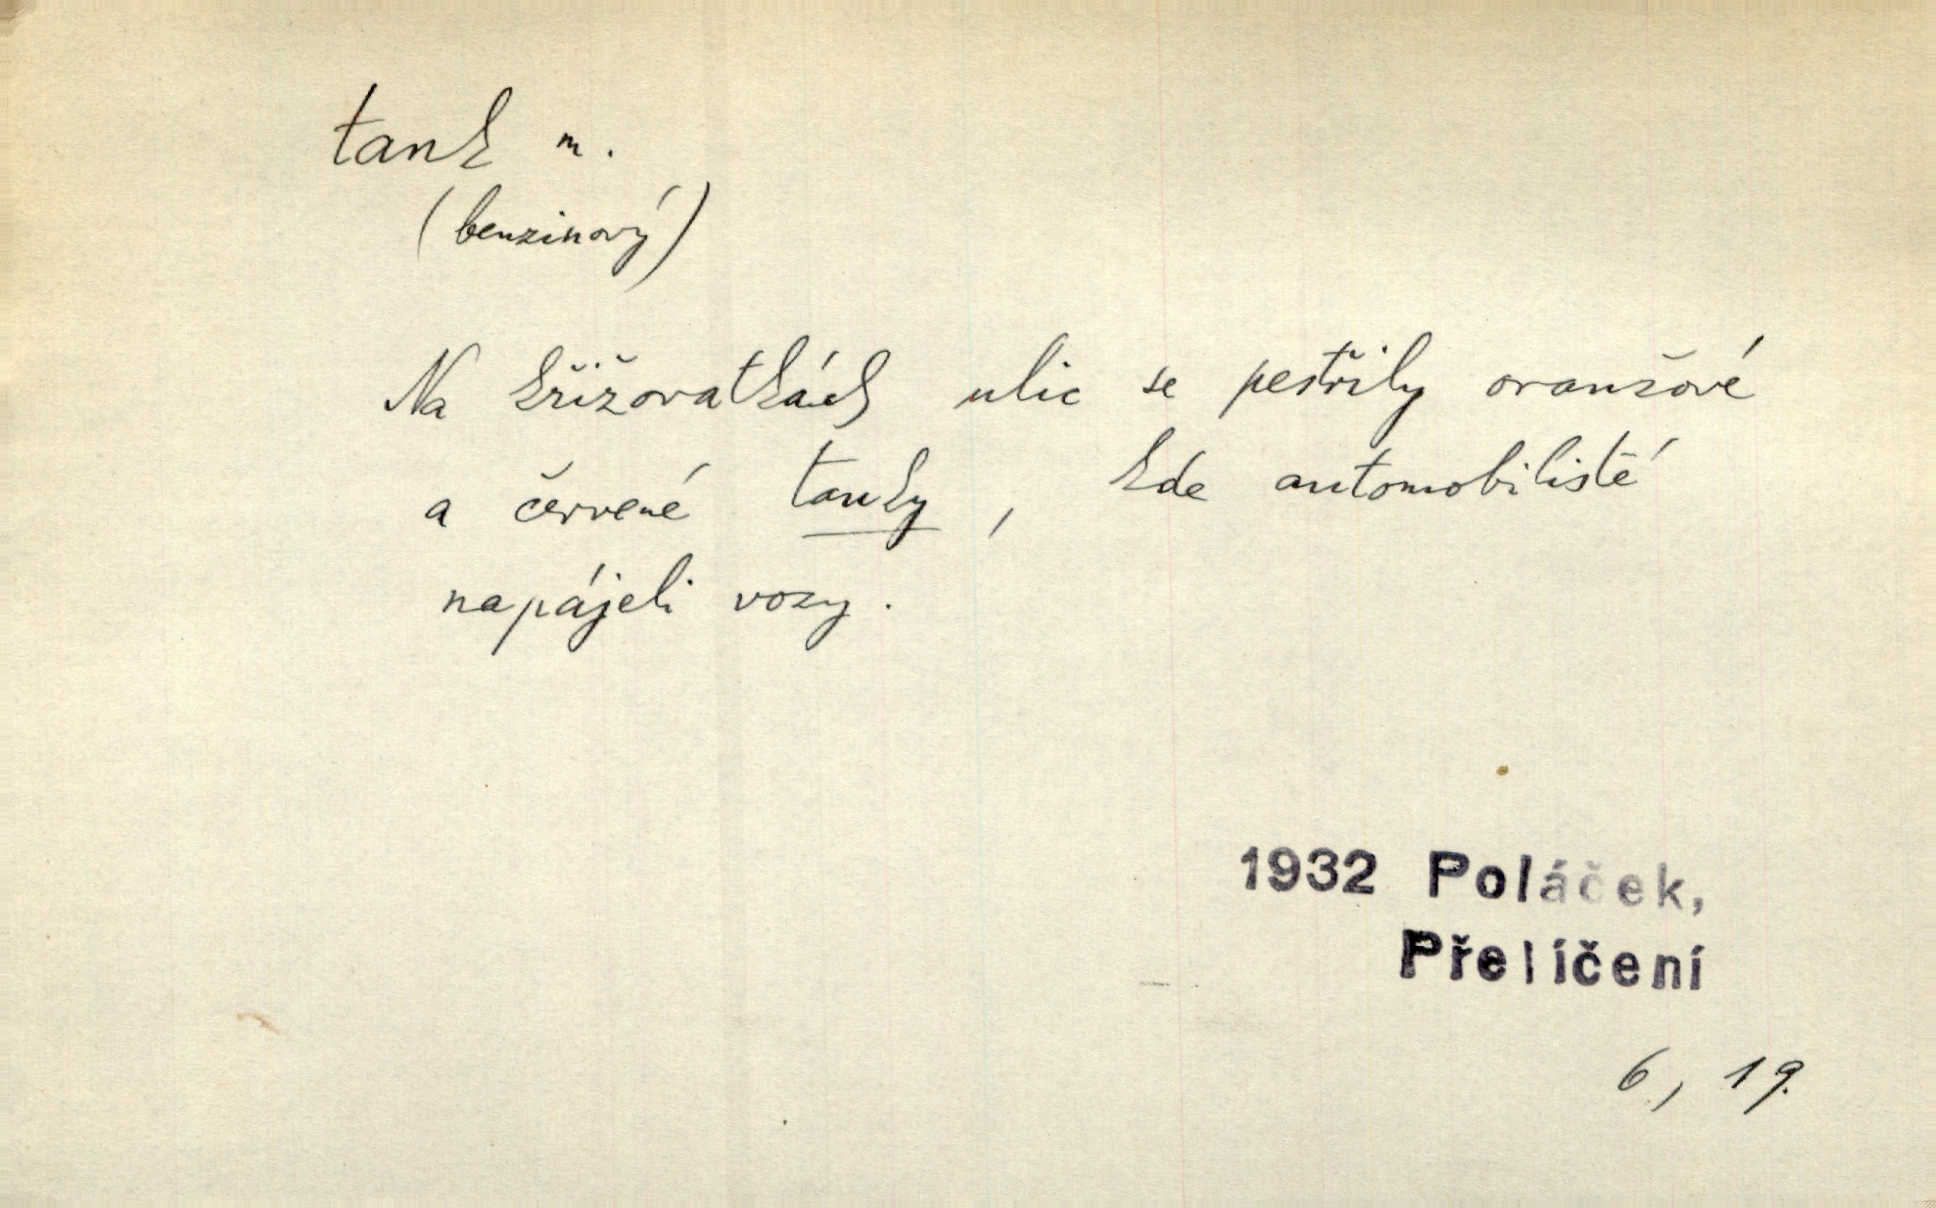 tank m.
(benzinový)
Na křižovatkách ulic se pestřily oranžové
a červené tanky, kde automobilisté
napájeli vozy.
1932 Poláček,
Přelíčení
6, 19.